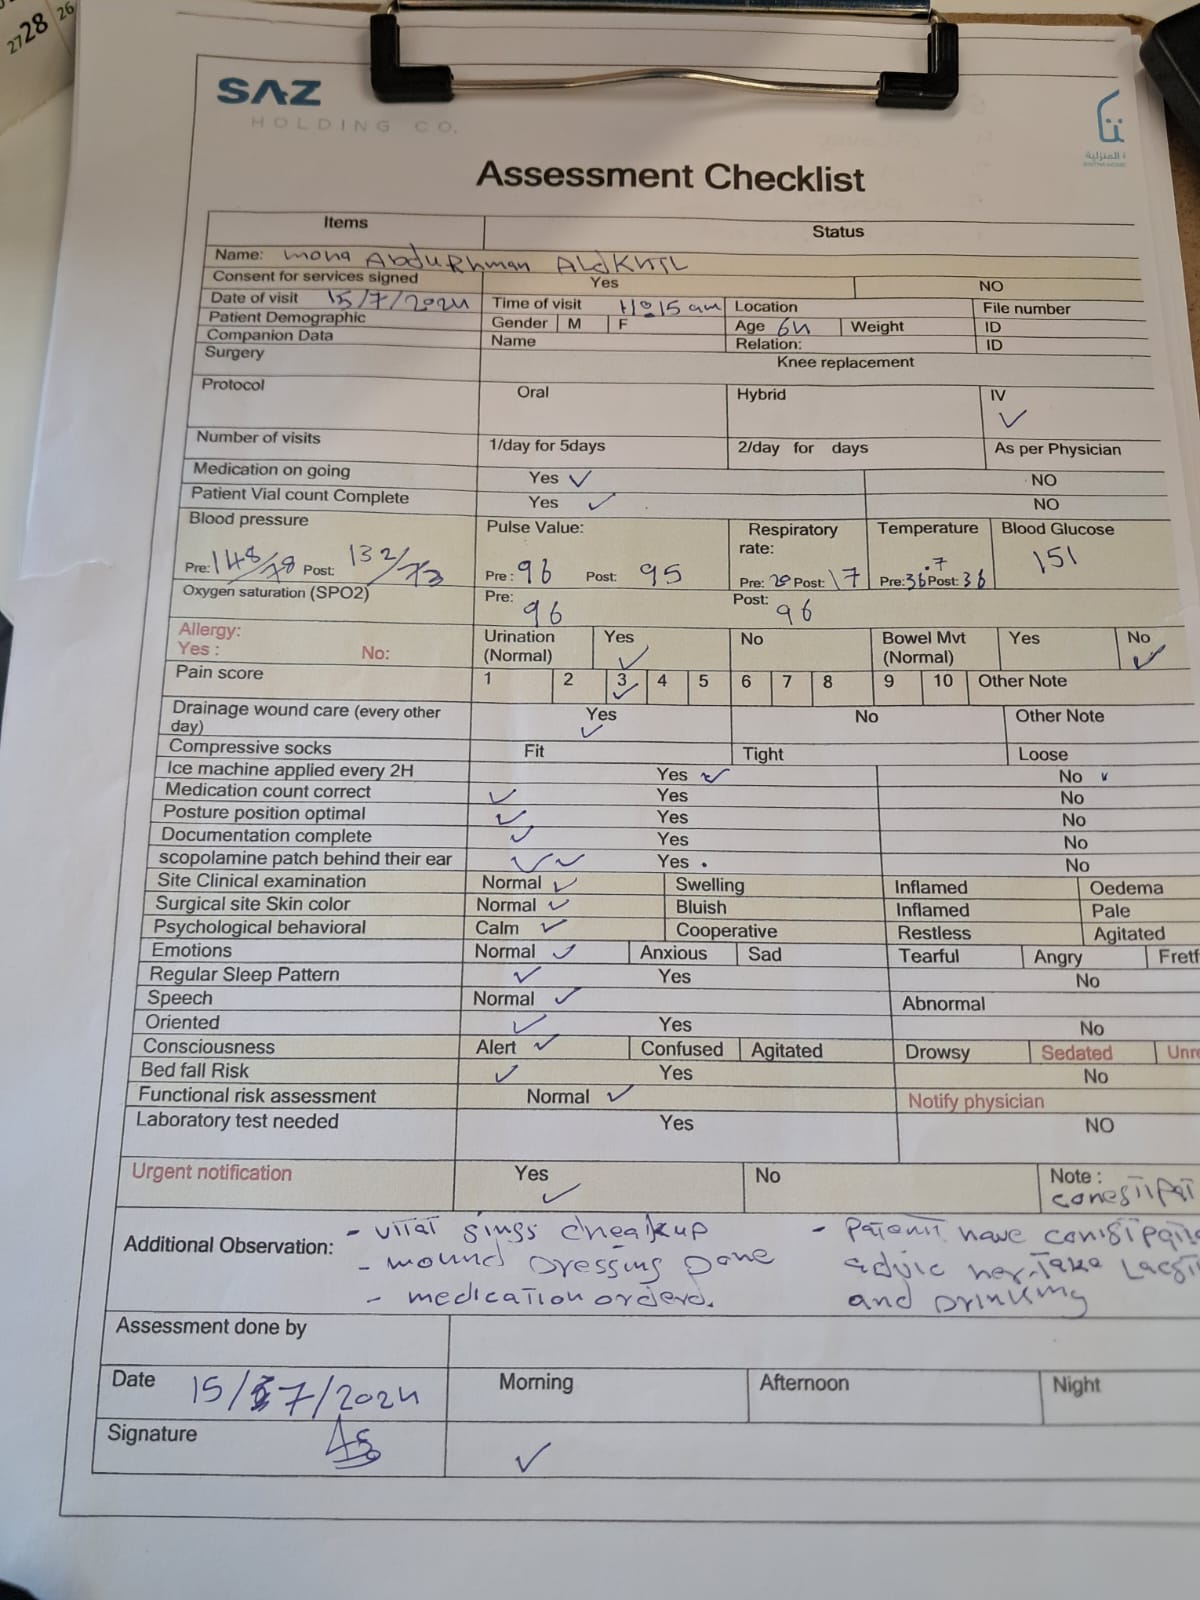 27 28 26
SAZ
HOLDING CO.
المنزلية
Assessment Checklist
Items Status
Name: mona Abdurhman
Consent for services signed Yes NO
Date of visit 15/7/2024 Time of visit 11:15 am Location File number
Patient Demographic Gender M F Age 64 Weight ID
Companion Data Name Relation: ID
Surgery Knee replacement
Protocol Oral Hybrid IV ✓
Number of visits 1/day for 5days 2/day for days As per Physician
Medication on going Yes ✓ NO
Patient Vial count Complete Yes ✓ NO
Blood pressure Pulse Value: Respiratory rate: Temperature Blood Glucose
Pre: 148/78 Post: 132/73 Pre: 96 Post: 95 Pre: 20 Post: 17 Pre: 36.7 Post: 36 151
Oxygen saturation (SPO2) Pre: 96 Post: 96
Allergy: Urination (Normal) Yes ✓ No Bowel Mvt (Normal) Yes No ✓
Yes : No:
Pain score 1 2 3 ✓ 4 5 6 7 8 9 10 Other Note
Drainage wound care (every other day) Yes ✓ No Other Note
Compressive socks Fit Tight Loose
Ice machine applied every 2H Yes ✓ No
Medication count correct ✓ Yes No
Posture position optimal ✓ Yes No
Documentation complete ✓ Yes No
scopolamine patch behind their ear ✓✓ Yes No
Site Clinical examination Normal ✓ Swelling Inflamed Oedema
Surgical site Skin color Normal ✓ Bluish Inflamed Pale
Psychological behavioral Calm ✓ Cooperative Restless Agitated
Emotions Normal ✓ Anxious Sad Tearful Angry Fretf
Regular Sleep Pattern ✓ Yes No
Speech Normal ✓ Abnormal
Oriented ✓ Yes No
Consciousness Alert ✓ Confused Agitated Drowsy Sedated Unre
Bed fall Risk ✓ Yes No
Functional risk assessment Normal ✓ Notify physician
Laboratory test needed Yes NO
Urgent notification Yes ✓ No Note :
Additional Observation:
- vital sings cheakup
- mound Dressing Done
- medication orderd.
- Patent have
advic her Take
and Drinking
Assessment done by
Date 15/7/2024 Morning Afternoon Night
Signature ✓